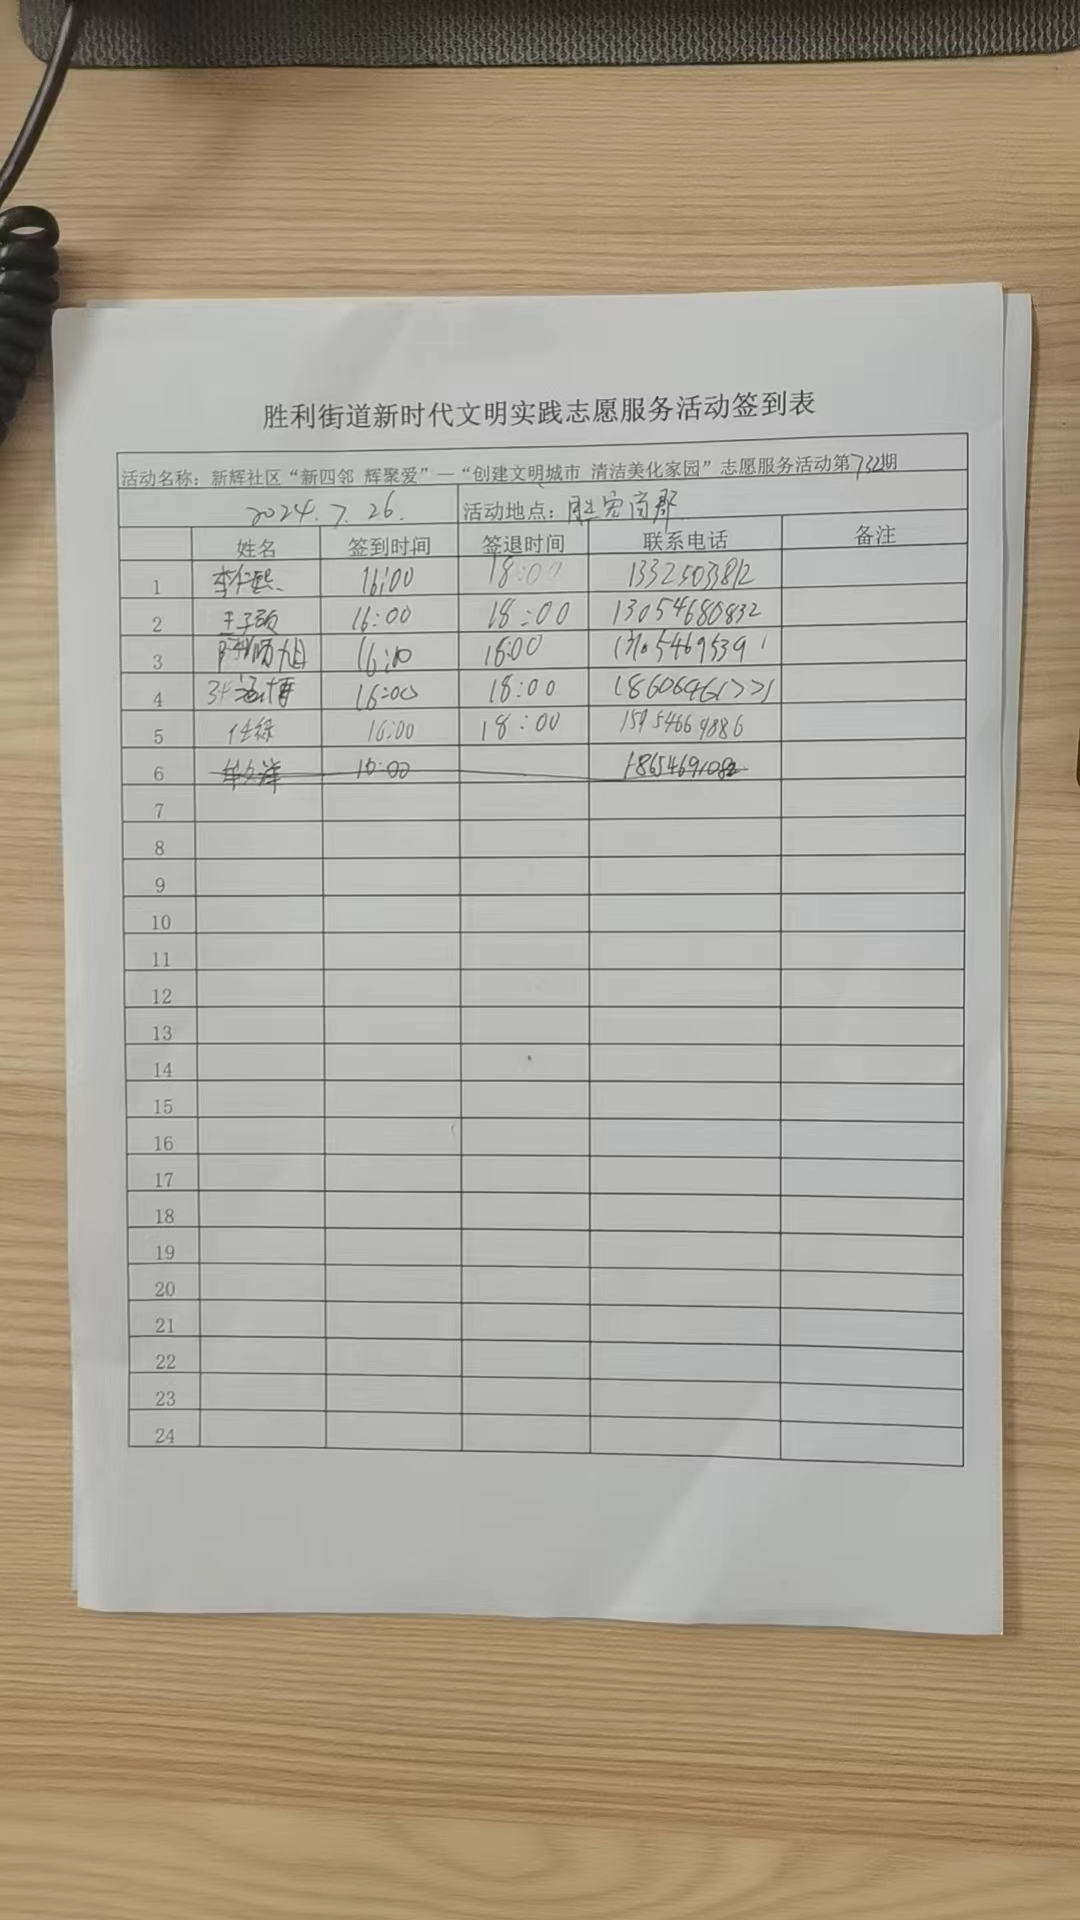 胜利街道新时代文明实践志愿服务活动签到表
活动名称：新辉社区“新四邻 辉聚爱”—“创建文明城市 清洁美化家园”志愿服务活动第732期
2024.7.26. 活动地点：胜宏商郡
姓名 签到时间 签退时间 联系电话 备注
1 李仁熙 16:00 18:00 13325033812
2 王子颐 16:00 18:00 13054680832
3 16:00
4 16:00 18:00
5 任绿 16:00 18:00
6 16:00
7
8
9
10
11
12
13
14
15
16
17
18
19
20
21
22
23
24